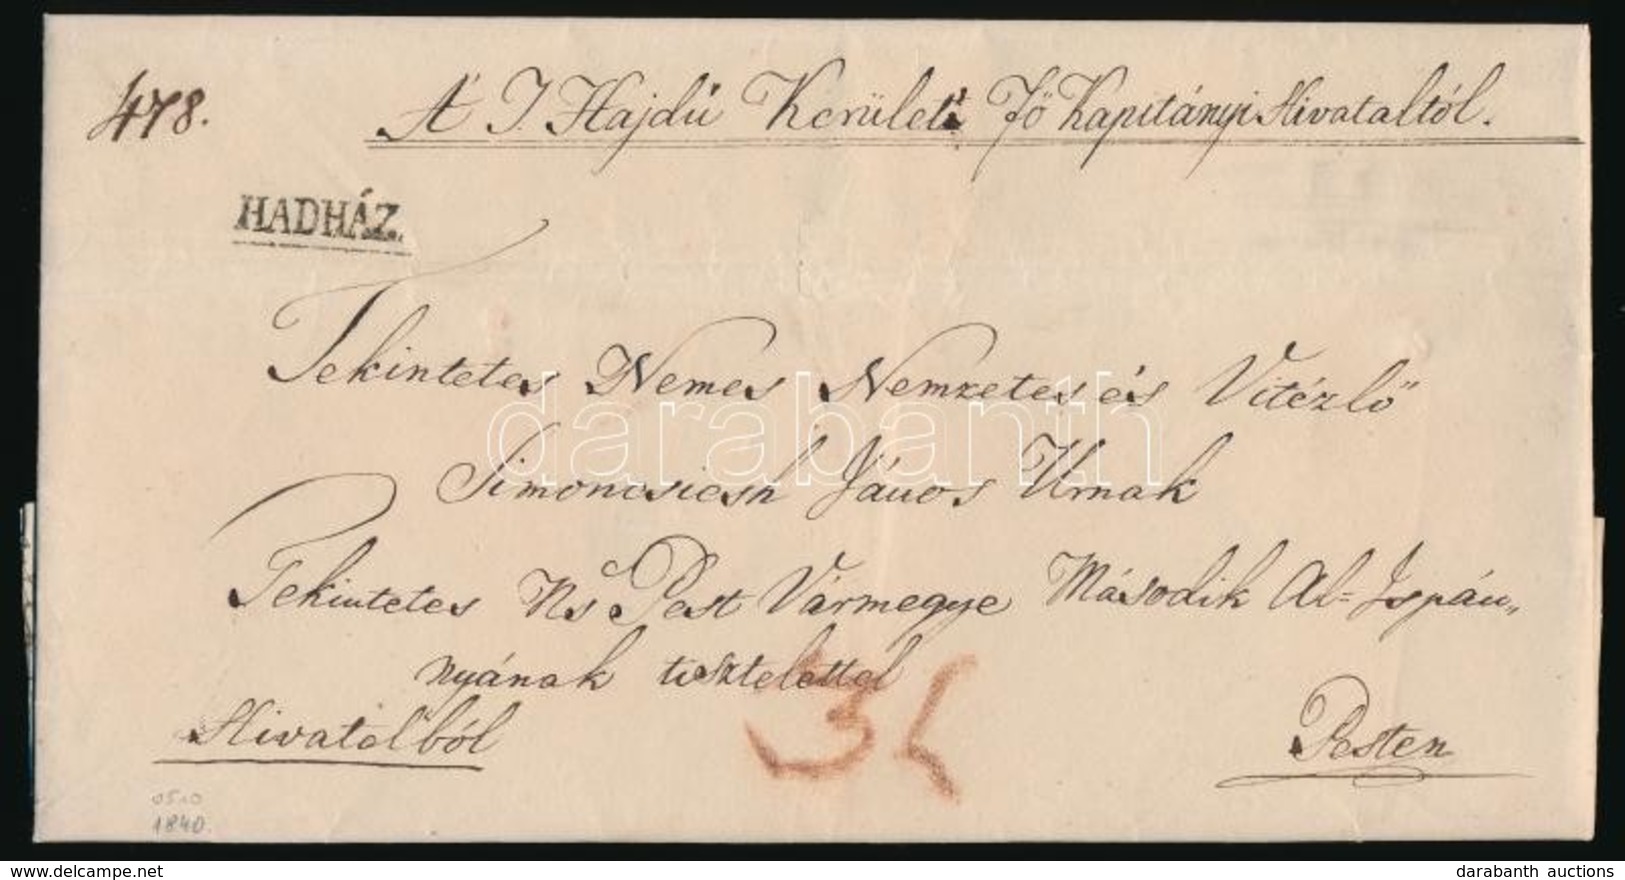 478. A' J. Hajdú Kerületi Fő Kapitányi Hivataltól.
HADHÁZ.
Tekintetes Nemes Nemzetes és Vitézlő
Simoncsicsh János Urnak
Tekintetes Ns Pest Vármegye Második Al=Ispán„
nyának tisztelettel
Hivatalból
Pesten
1840.
darabanth
delcampe.net
darabanth auctions